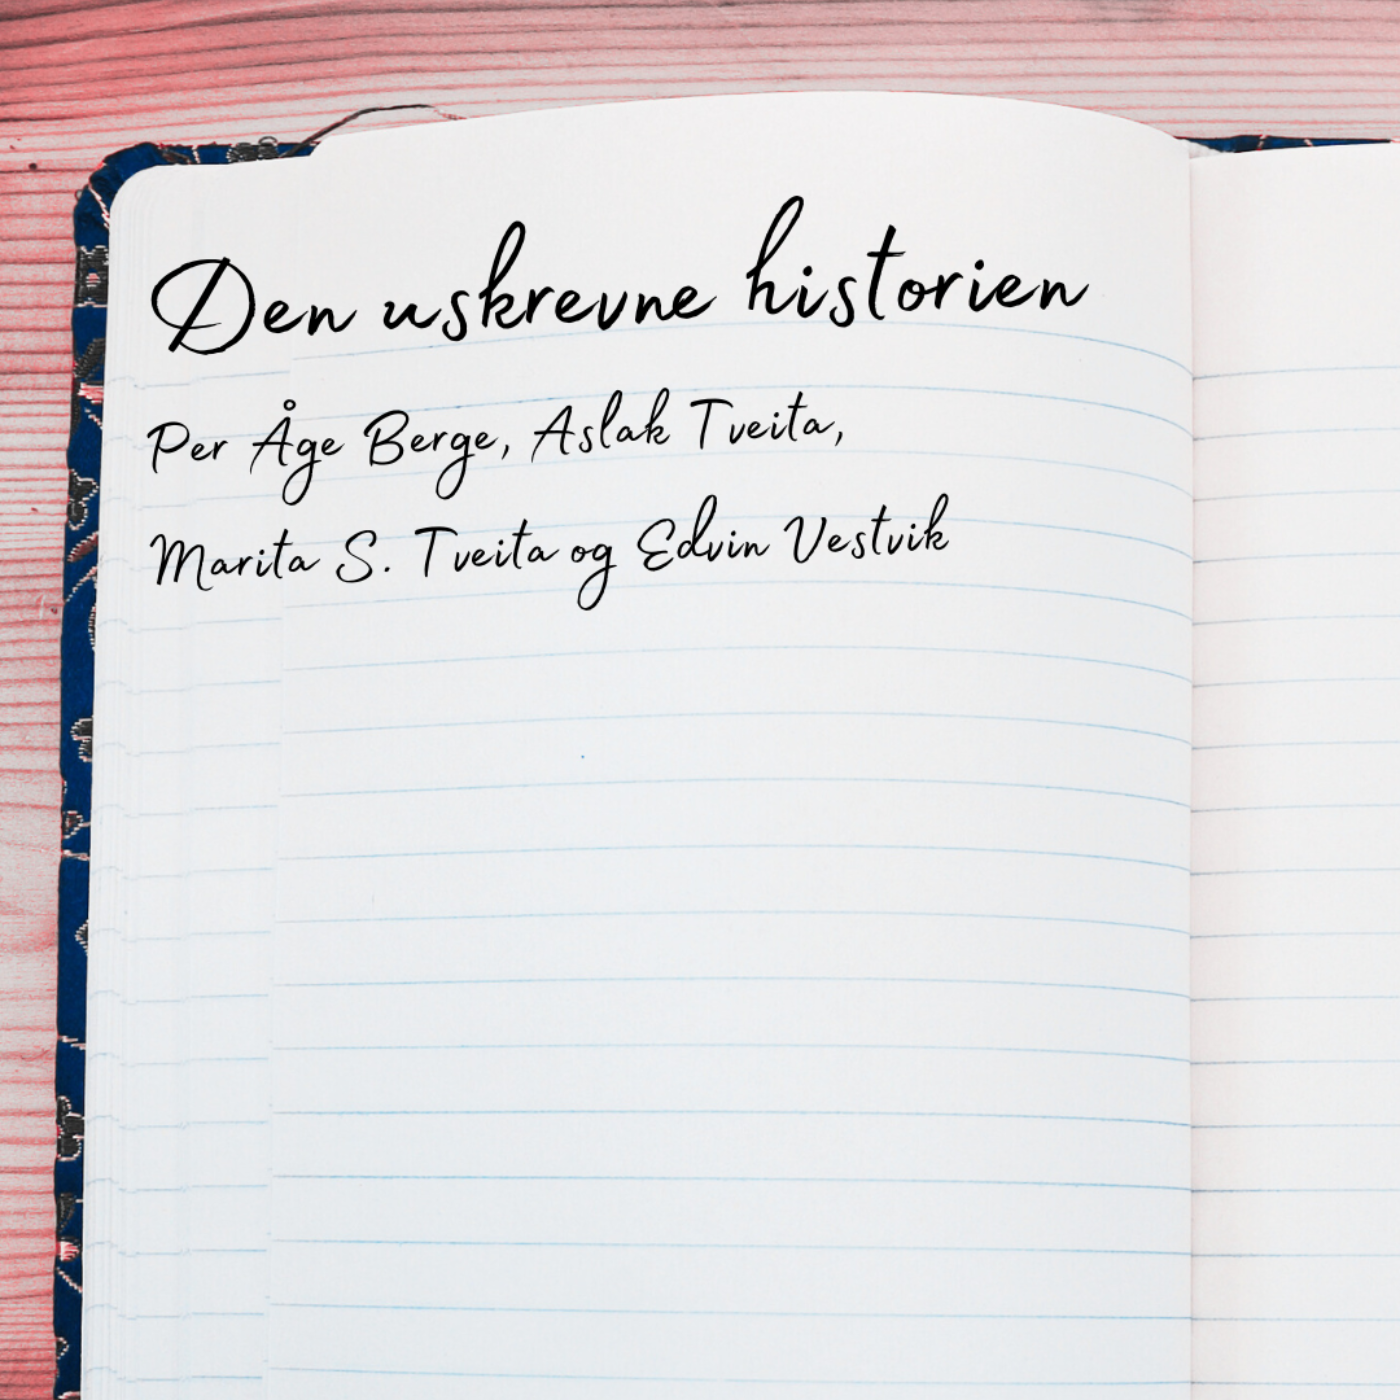 Den uskrevne historien
Per Åge Berge, Aslak Tveita,
Marita S. Tveita og Edvin Vestvik